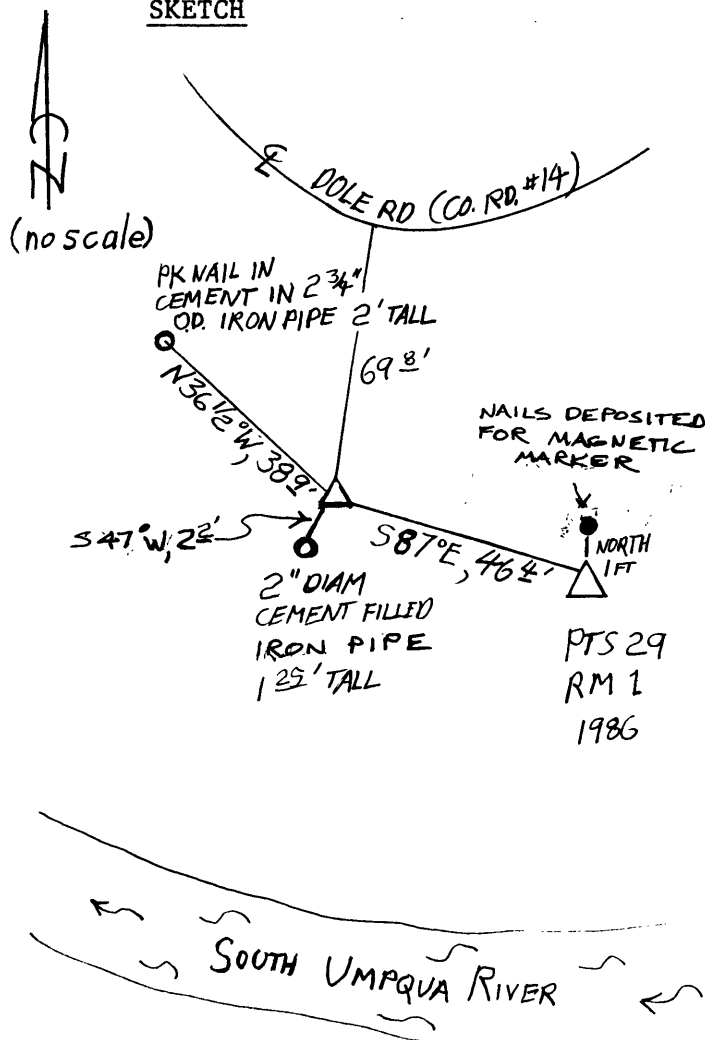 SKETCH
N
(no scale)
℄ DOLE RD (CO. RD. #14)
PK NAIL IN
CEMENT IN 2 3/4"
O.D. IRON PIPE 2' TALL
69 8'
N36 1/2°W, 38 9'
NAILS DEPOSITED
FOR MAGNETIC
MARKER
S 47°W, 2 2'
S87°E, 46 4'
NORTH
1 FT
2" DIAM
CEMENT FILLED
IRON PIPE
1 25' TALL
PTS 29
RM 1
1986
SOUTH UMPQUA RIVER